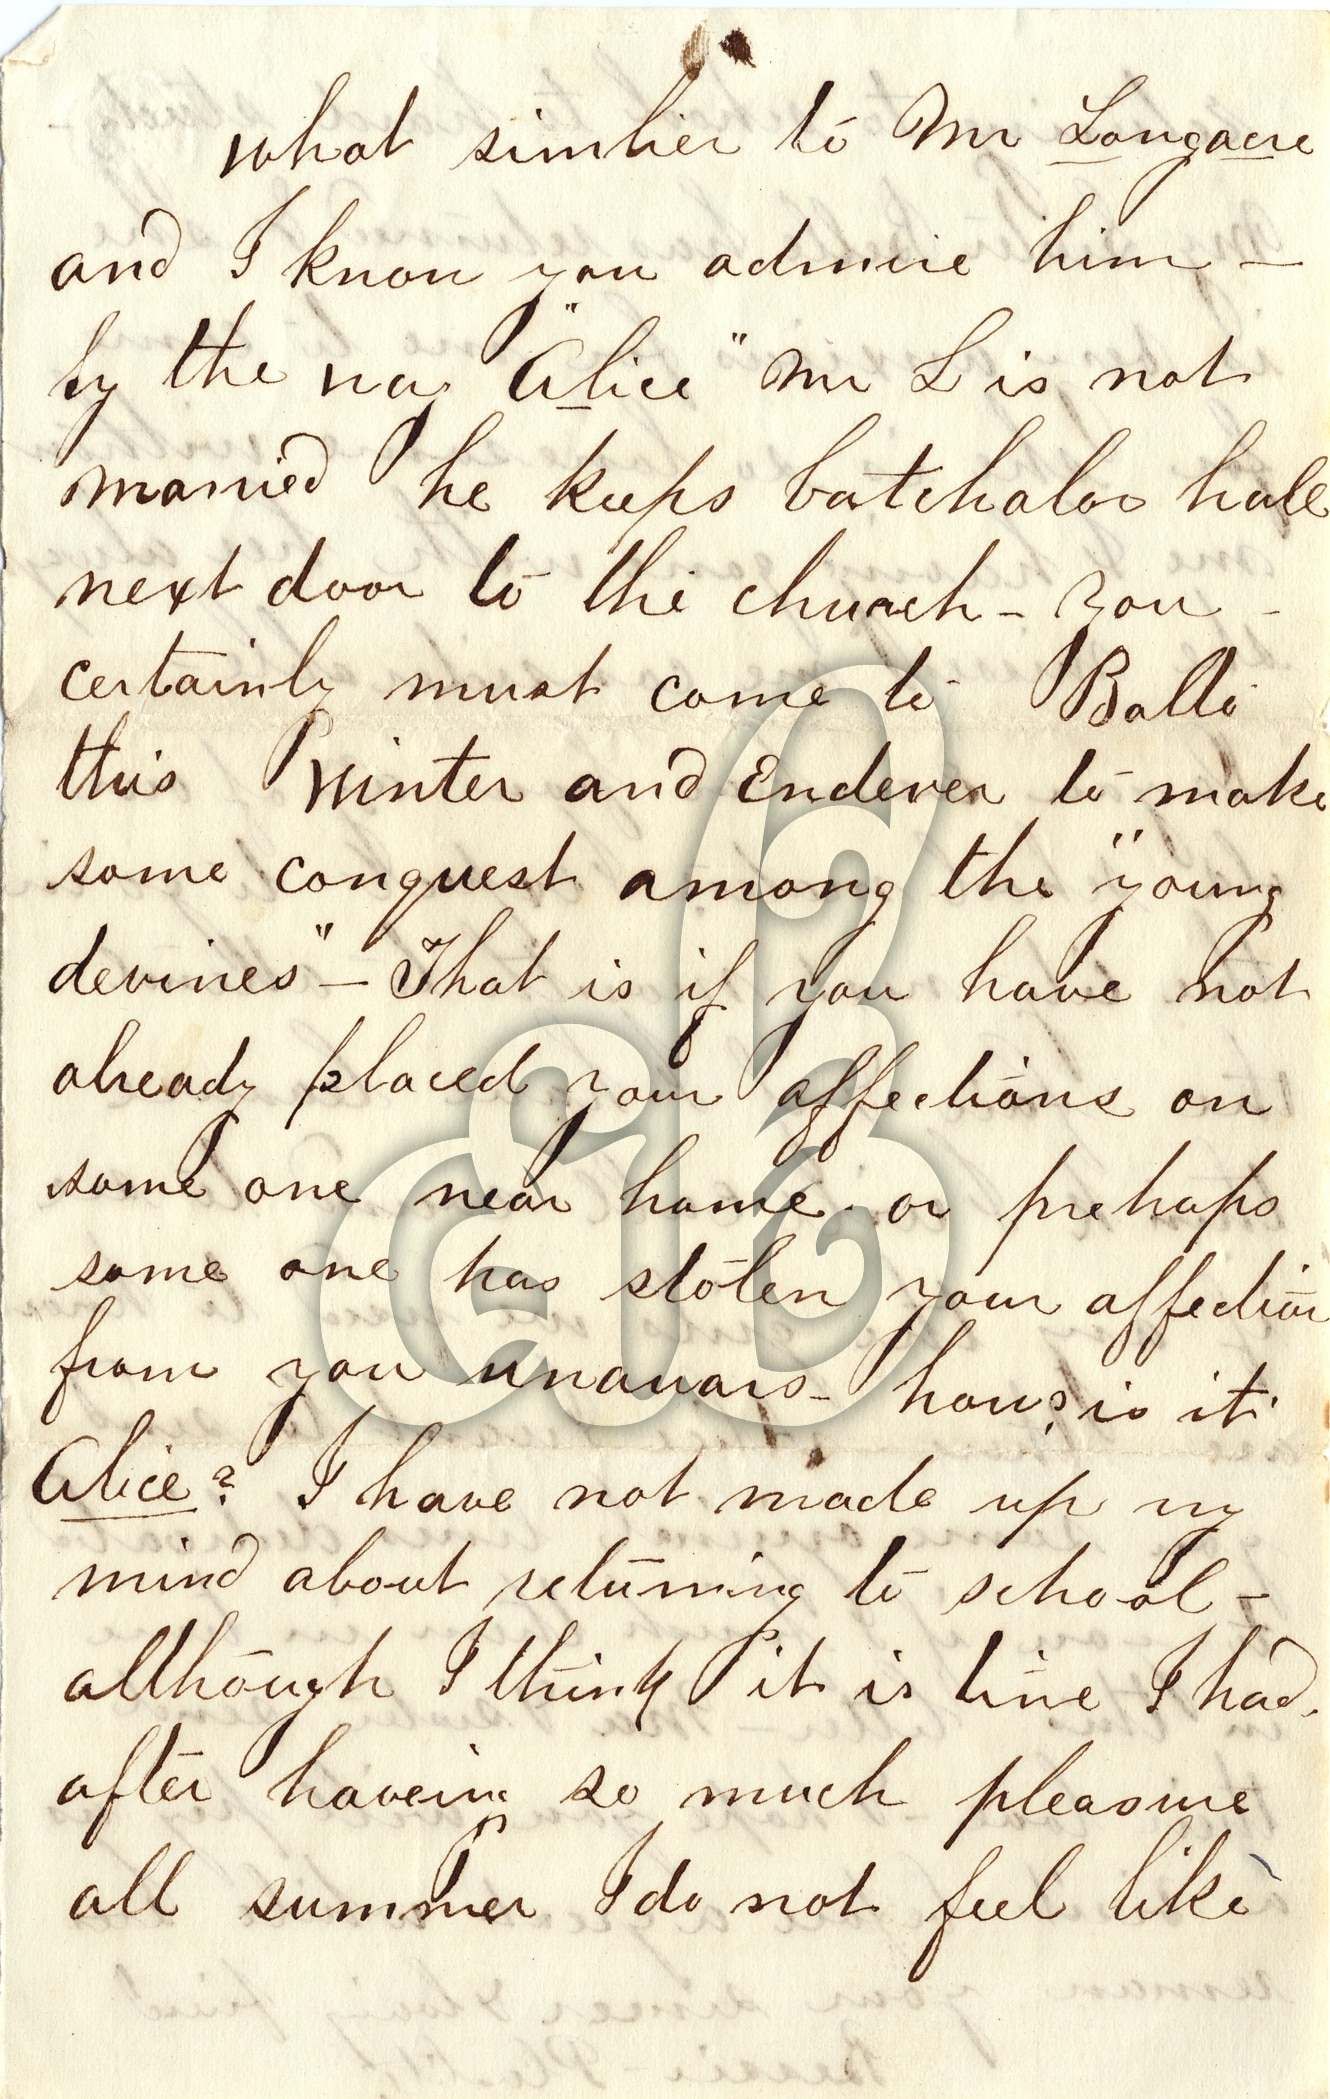 what similier to Mr Longacre
and I know you admire him —
by the way "Alice" Mr L is not
married he keeps batchalor hall
next door to the church – you –
certainly must come to Balto
this Winter and Endever to make
some conquest among the "young
devines" – That is if you have not
already placed your affections on
some one near home. or prehaps
some one has stolen your affection
from you unawars – how is it
Alice? I have not made up my
mind about returning to school –
although I think it is time I had.
after haveing so much pleasure
all summer I do not feel like